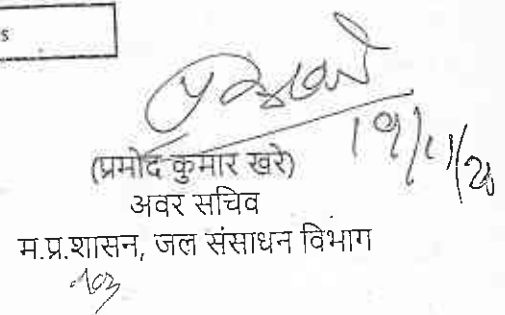 s
19/11/20
(प्रमोद कुमार खरे)
अवर सचिव
म.प्र.शासन, जल संसाधन विभाग